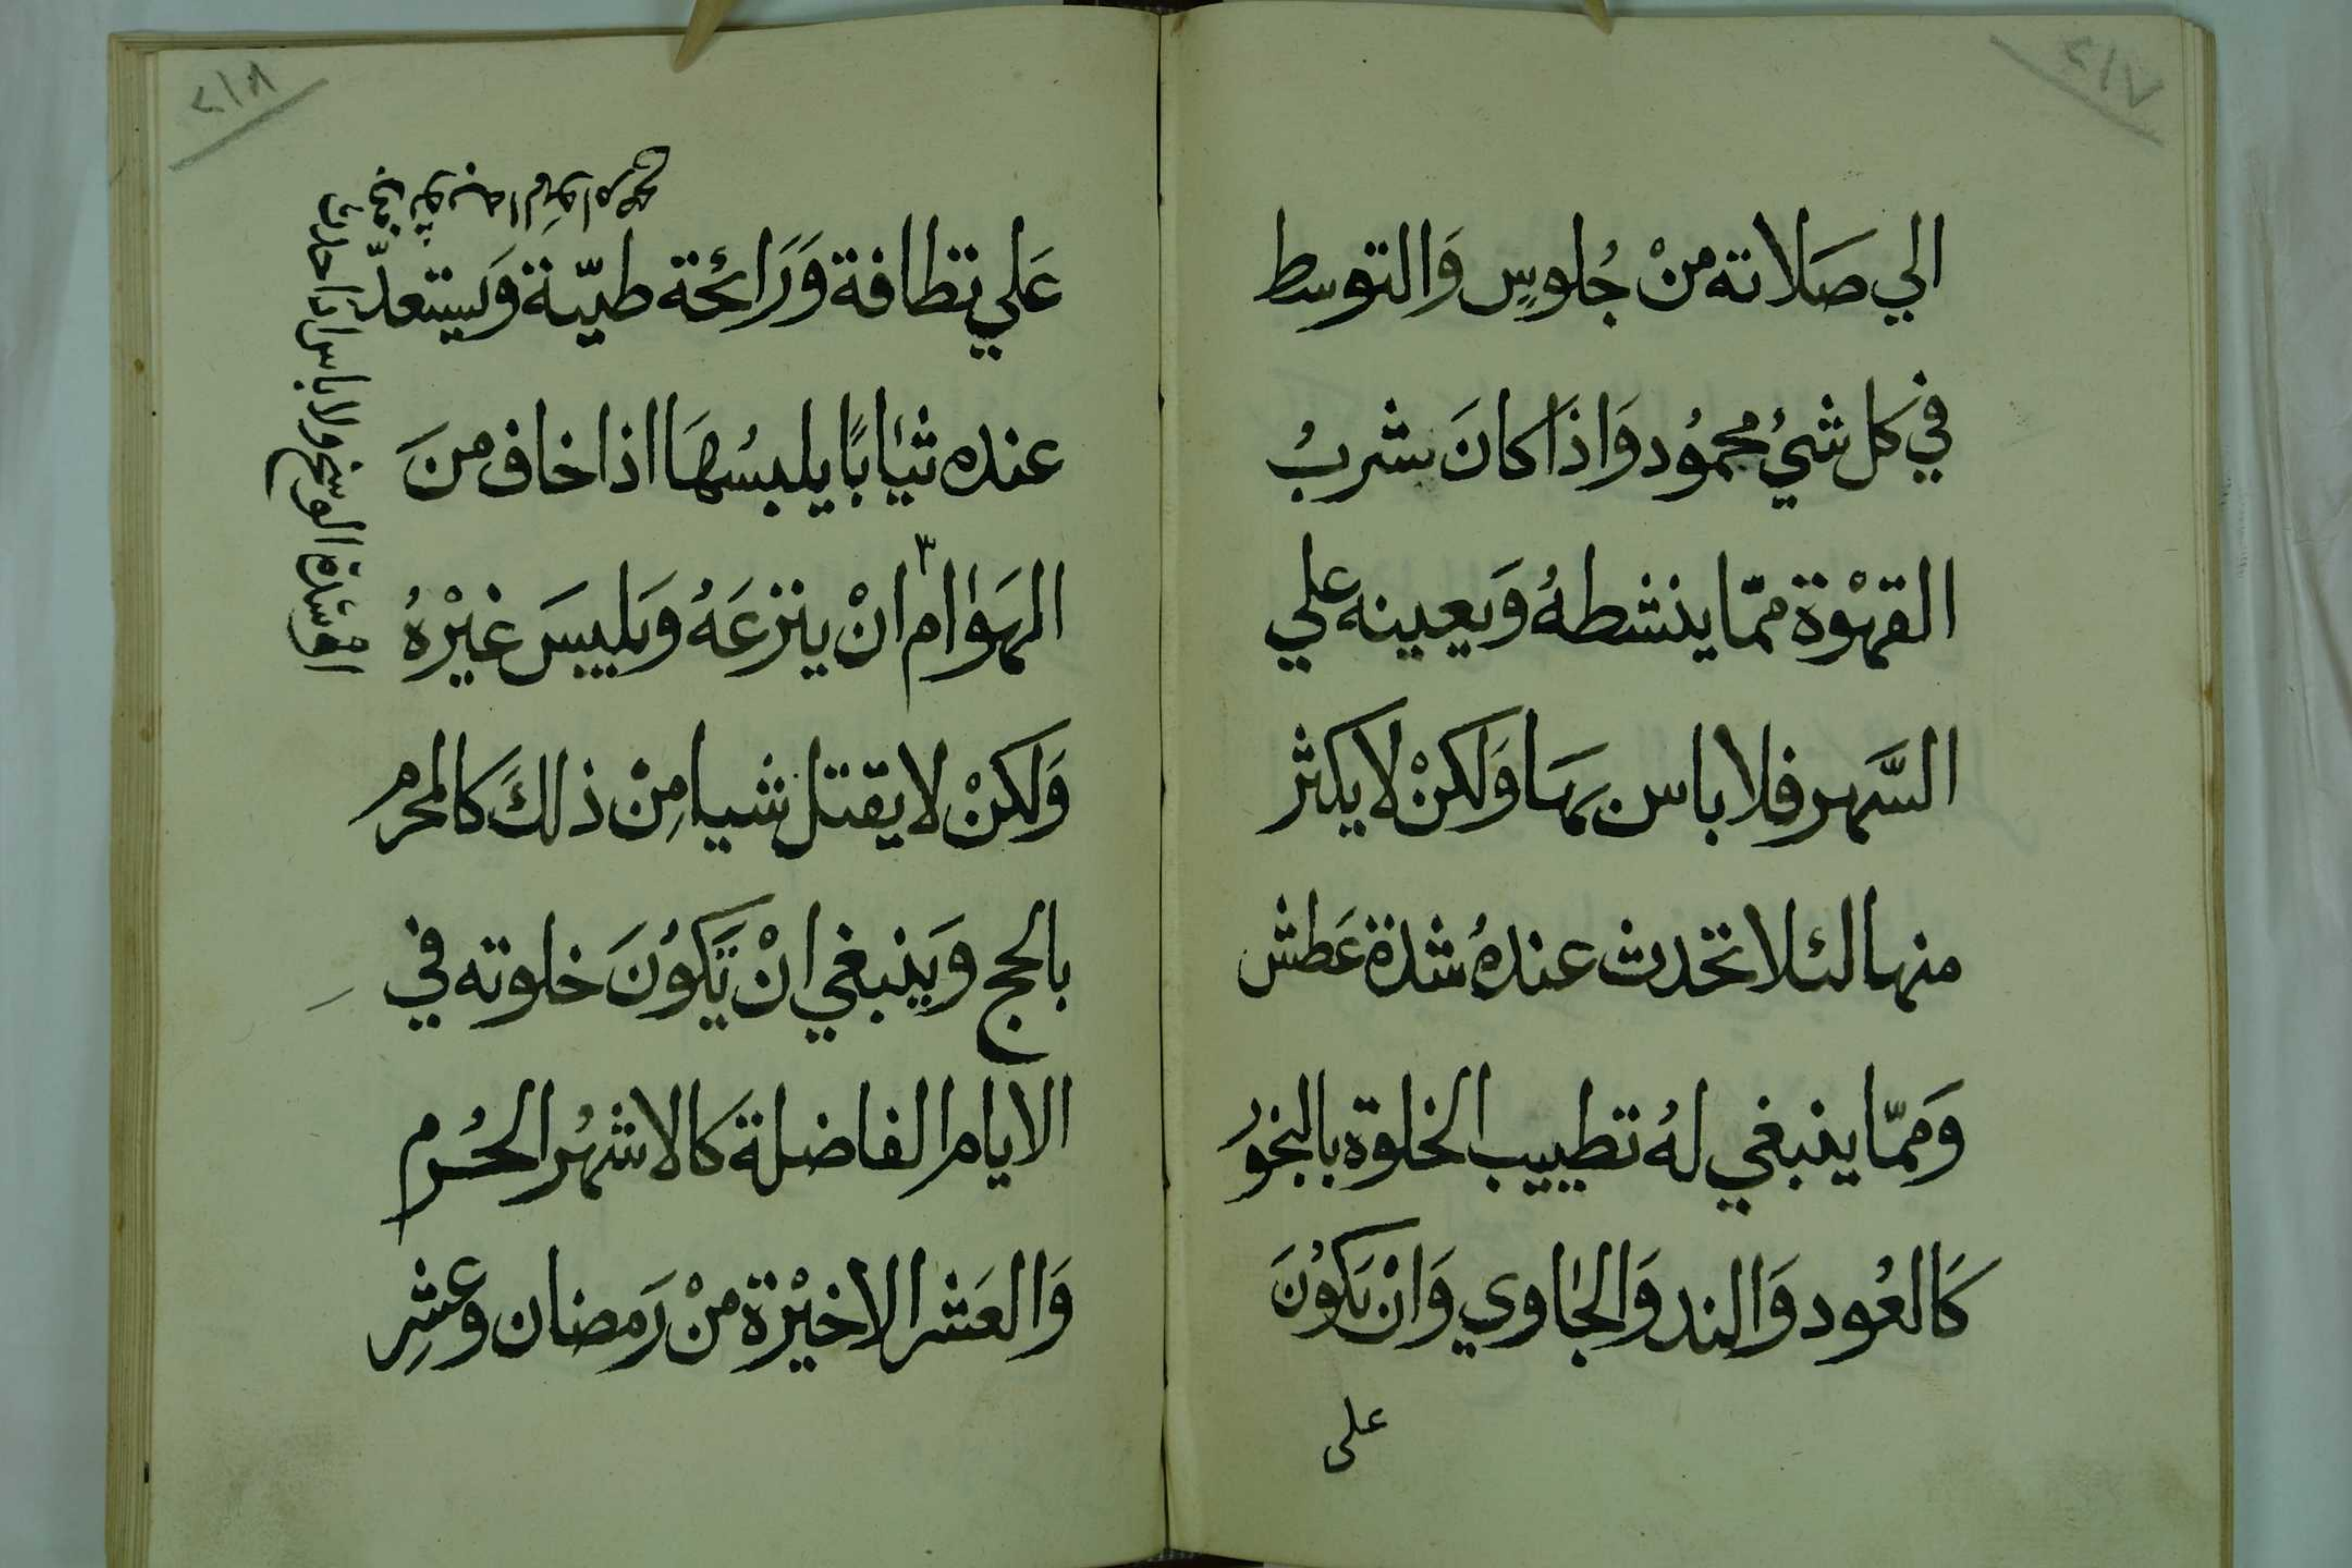 ٢١٧
الي صَلاته منْ جُلوسٍ وَالتوسط
في كل شيُ محمُود وَاذَا كانَ شربُ
القهْوة ممّا ينشطهُ وَيعينه علي
السَّهر فلا باس بهَا وَلكنْ لا يكثر
منها لئلا تحدث عندهُ شدة عَطش
وَممّا ينبغي لهُ تطييب الخلوة بالبخوُ
كَالعُود وَالند وَالجاوي وَانْ يَكوُنَ
علي
٢١٨
عَلي نظافة وَرَائحة طيّبة وَيستعدّ
عنده ثيابًا يلبسُهَا اذا خاف منَ
الهَوام ٣ انْ ينزعَهُ وَيلبسَ غيْرهُ
وَلكنْ لا يقتل شيا مِنْ ذلكَ كالمحرم
بالحج وَينبغي انْ تَكوُنَ خلوته في
الايام الفاضلة كالاشهُر الحُرم
وَالعَشر الاخيْرة منْ رَمضان وعشرِ
او شدة الوسخ ولا باس اذا حدث
في ثوبه الهوام